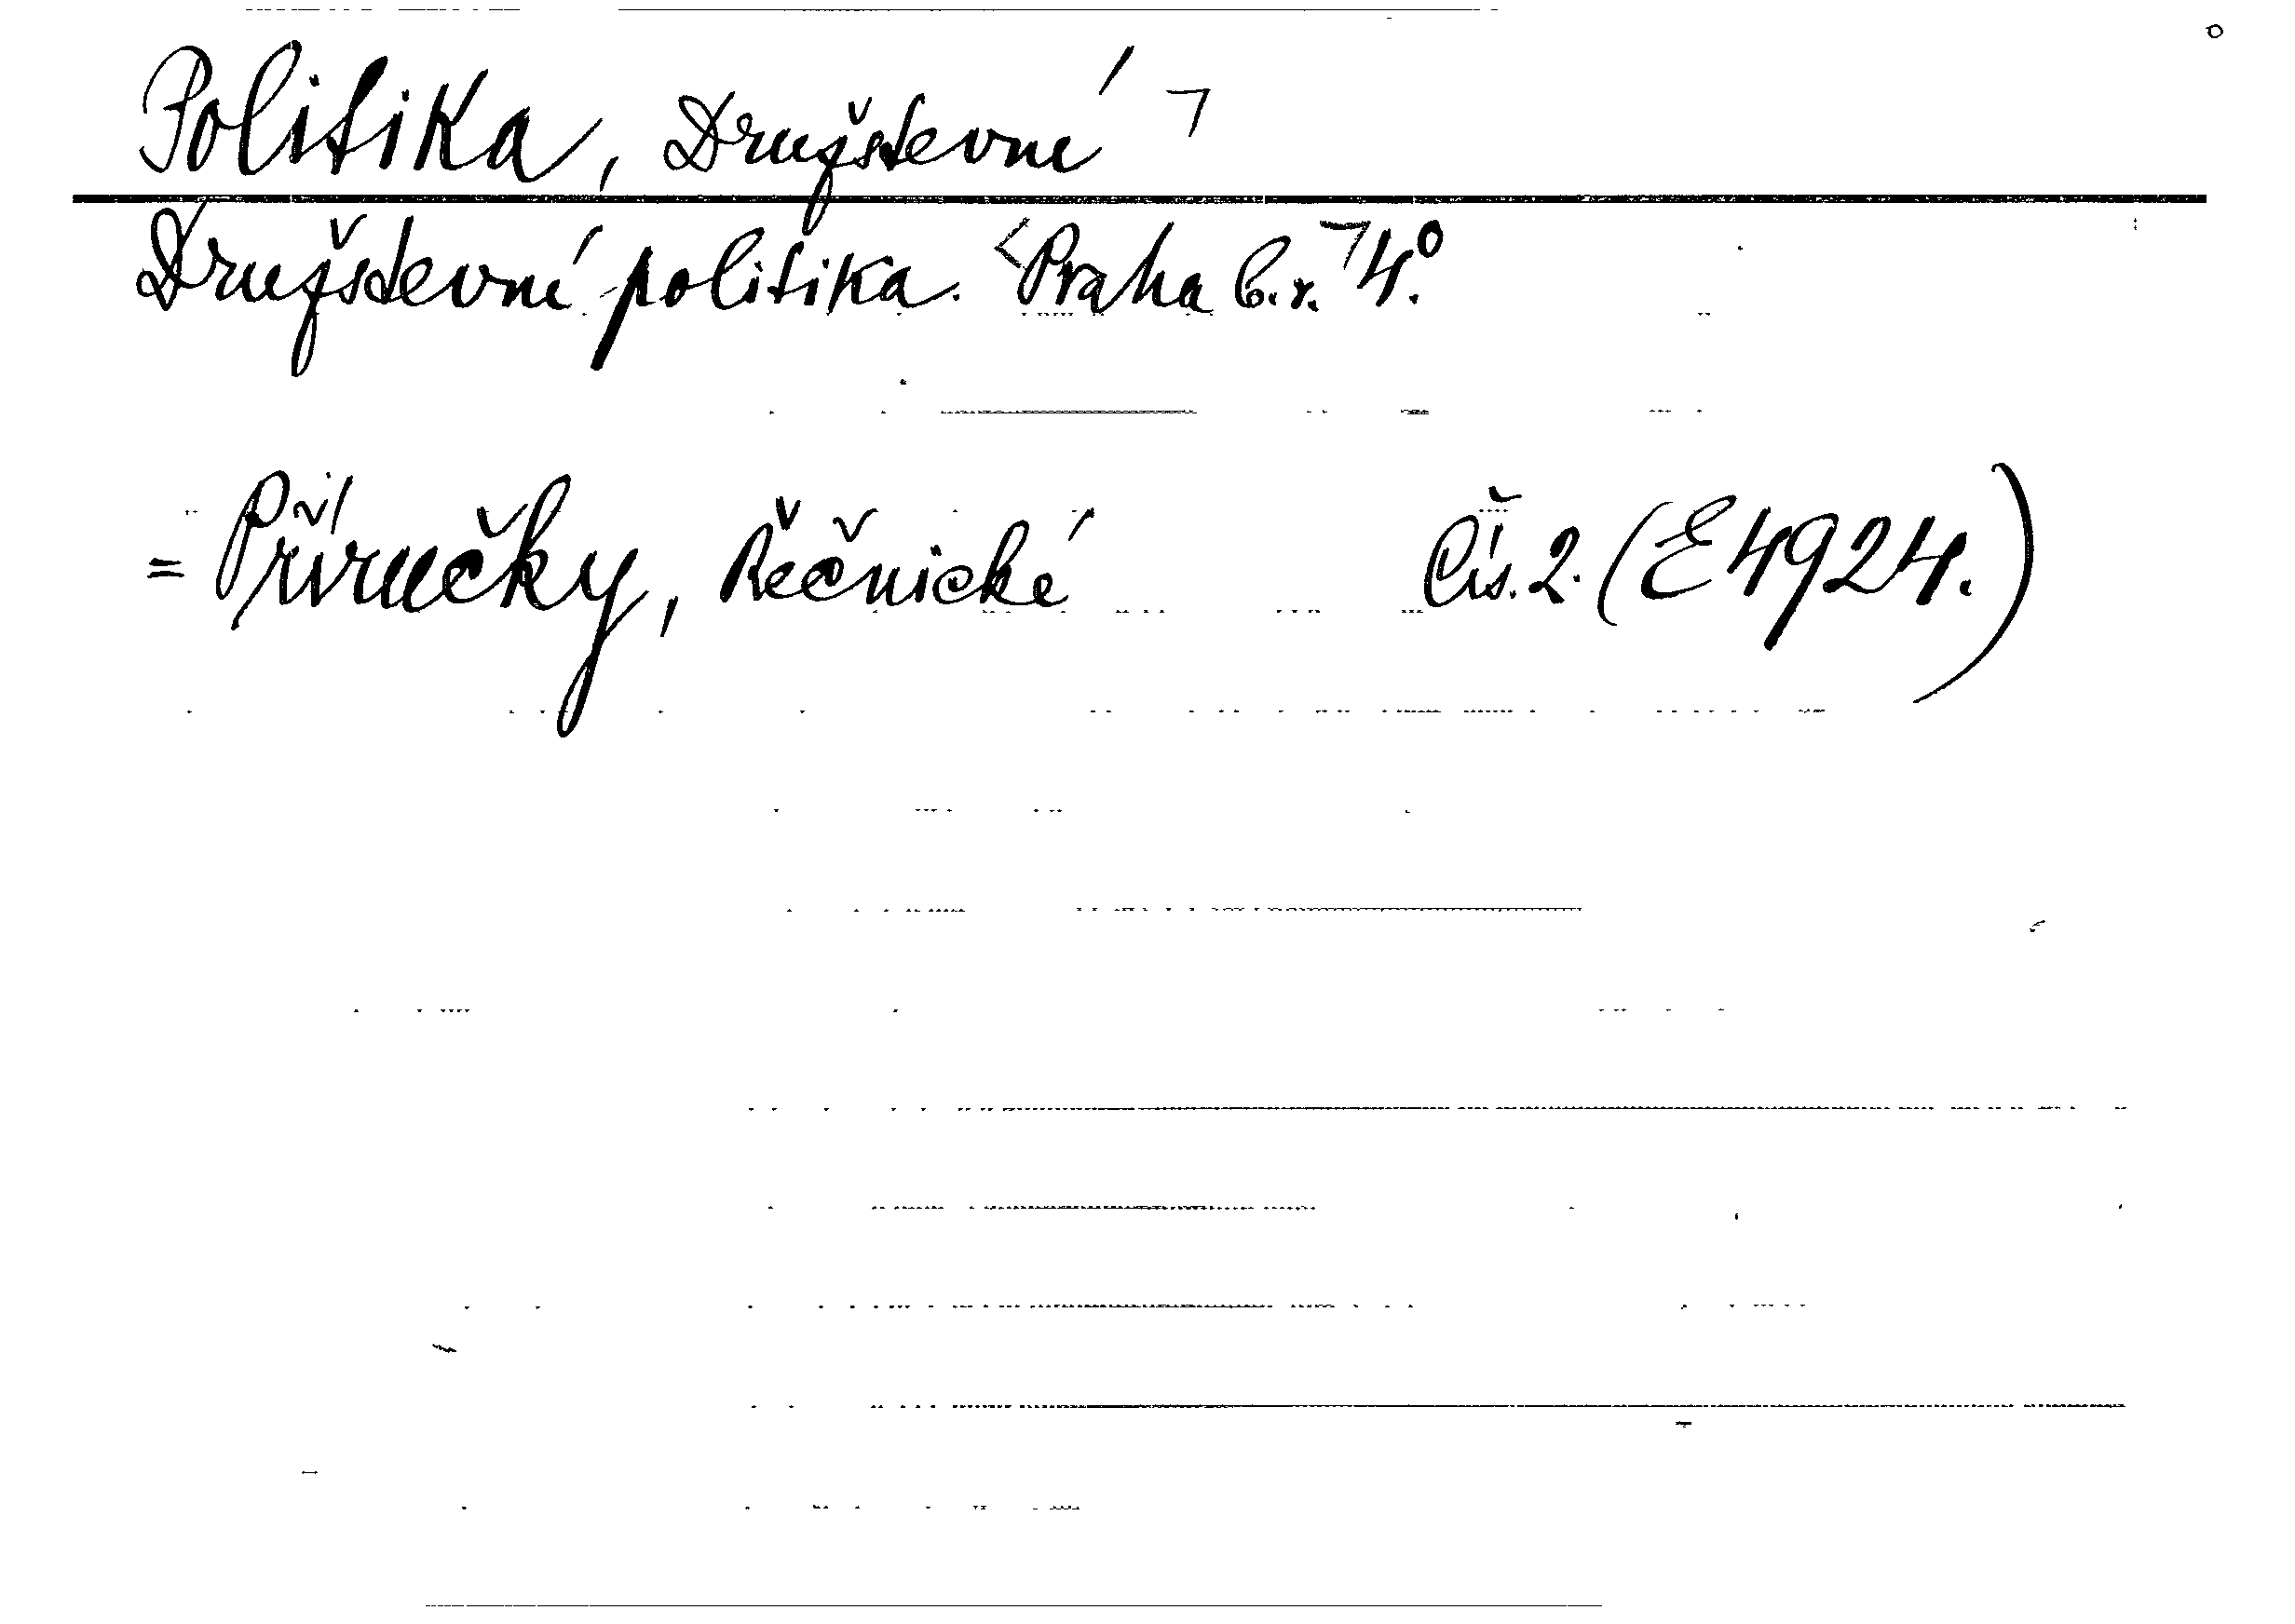 Politika, Družstevní ⌝
Družstevní politika. <Praha b.r.⌝ 4.°
= Příručky, Řečnické Čís. 2. (E 4924.)